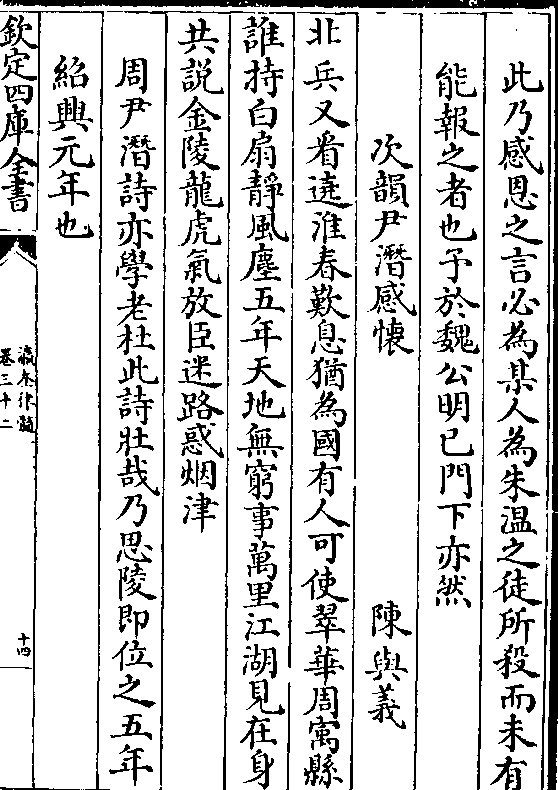 此乃感恩之言必為某人為朱温之徒所殺而未有
能報之者也予於魏公明已門下亦然
次韻尹潛感懷 陳與義
北兵又看遶淮春歎息猶為國有人可使翠華周寓縣
誰持白扇靜風塵五年天地無窮事萬里江湖見在身
共説金陵龍虎氣放臣迷路惑烟津
周尹潛詩亦學老杜此詩壯哉乃思陵即位之五年
紹興元年也
欽定四庫全書
瀛奎律髓
卷三十二
十四